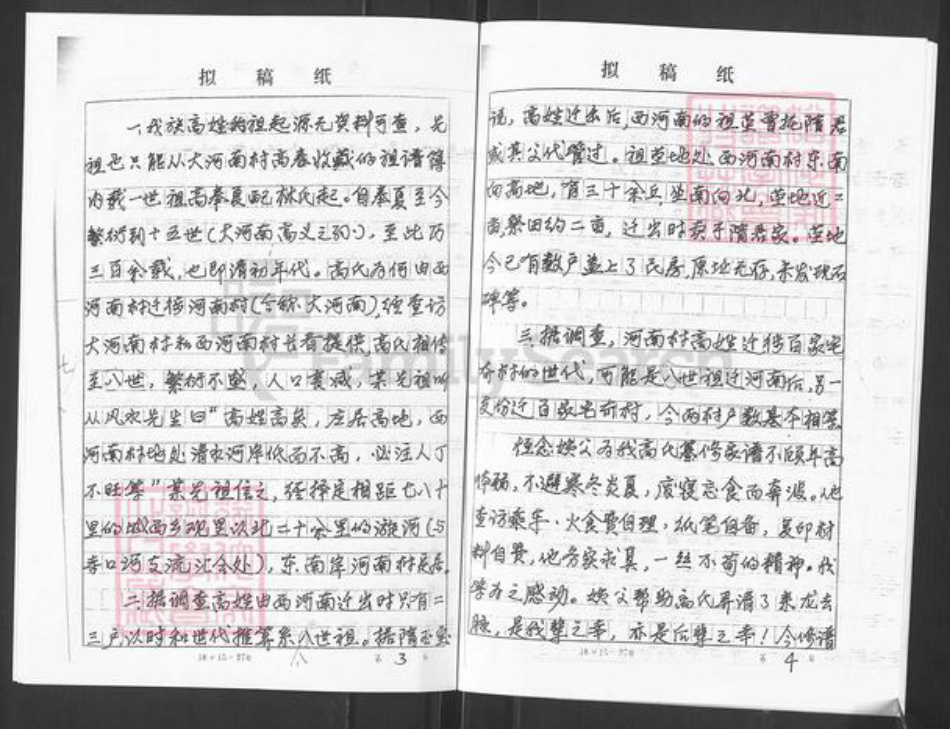 拟 稿 纸
一、我族高姓始祖起源无资料可查，先
祖也只能从大河南村高春收藏的祖谱簿
内载一世祖高奉夏配林氏起。自奉夏至今
繁衍到十五世（大河南高义之孙），至此历
三百余载，也即清初年代。高氏为何由西
河南村迁徙河南村（今称大河南）经查访
大河南村和西河南村长者提供，高氏相传
至八世，繁衍不盛，人口衰减，某先祖听
从风水先生曰“高姓高矣，应居高地，西
河南村地处清水河岸低而不高，必注人丁
不旺等”某先祖信之，经择定相距七八十
里的城西乡观里以北二十余里的漩河（与
寺口河支流汇合处），东南岸河南村定居。
二、据调查高姓由西河南迁出时只有二
三户以时和世代推算系八世祖。据隋
18×15=270
第 3 页
拟 稿 纸
说，高姓迁出后，西河南的祖茔曾托隋君
或其父代管过。祖茔地处西河南村东南
向高地，有三十余丘坐南向北，茔地近二
亩，祭田约二亩，迁出时卖于隋君家。茔地
今已有数户盖上了民房，原址无存，未发现石
碑等。
三、据调查，河南村高姓迁徙百家宅
夼村的世代，可能是八世祖迁河南后，另一
支份迁百家宅夼村，今两村户数基本相等
但念姨父为我高氏纂修家谱不顾年高
体弱，不避寒冬炎夏，废寝忘食而奔波。他
查访乘车、火食费自理，纸笔自备，复印材
料自费，他务实求真，一丝不苟的精神。我
等为之感动。姨父帮助高氏弄清了来龙去
脉，是我辈之幸，亦是后辈之幸！今修谱
18×15=270
第 4 页
FamilySearch